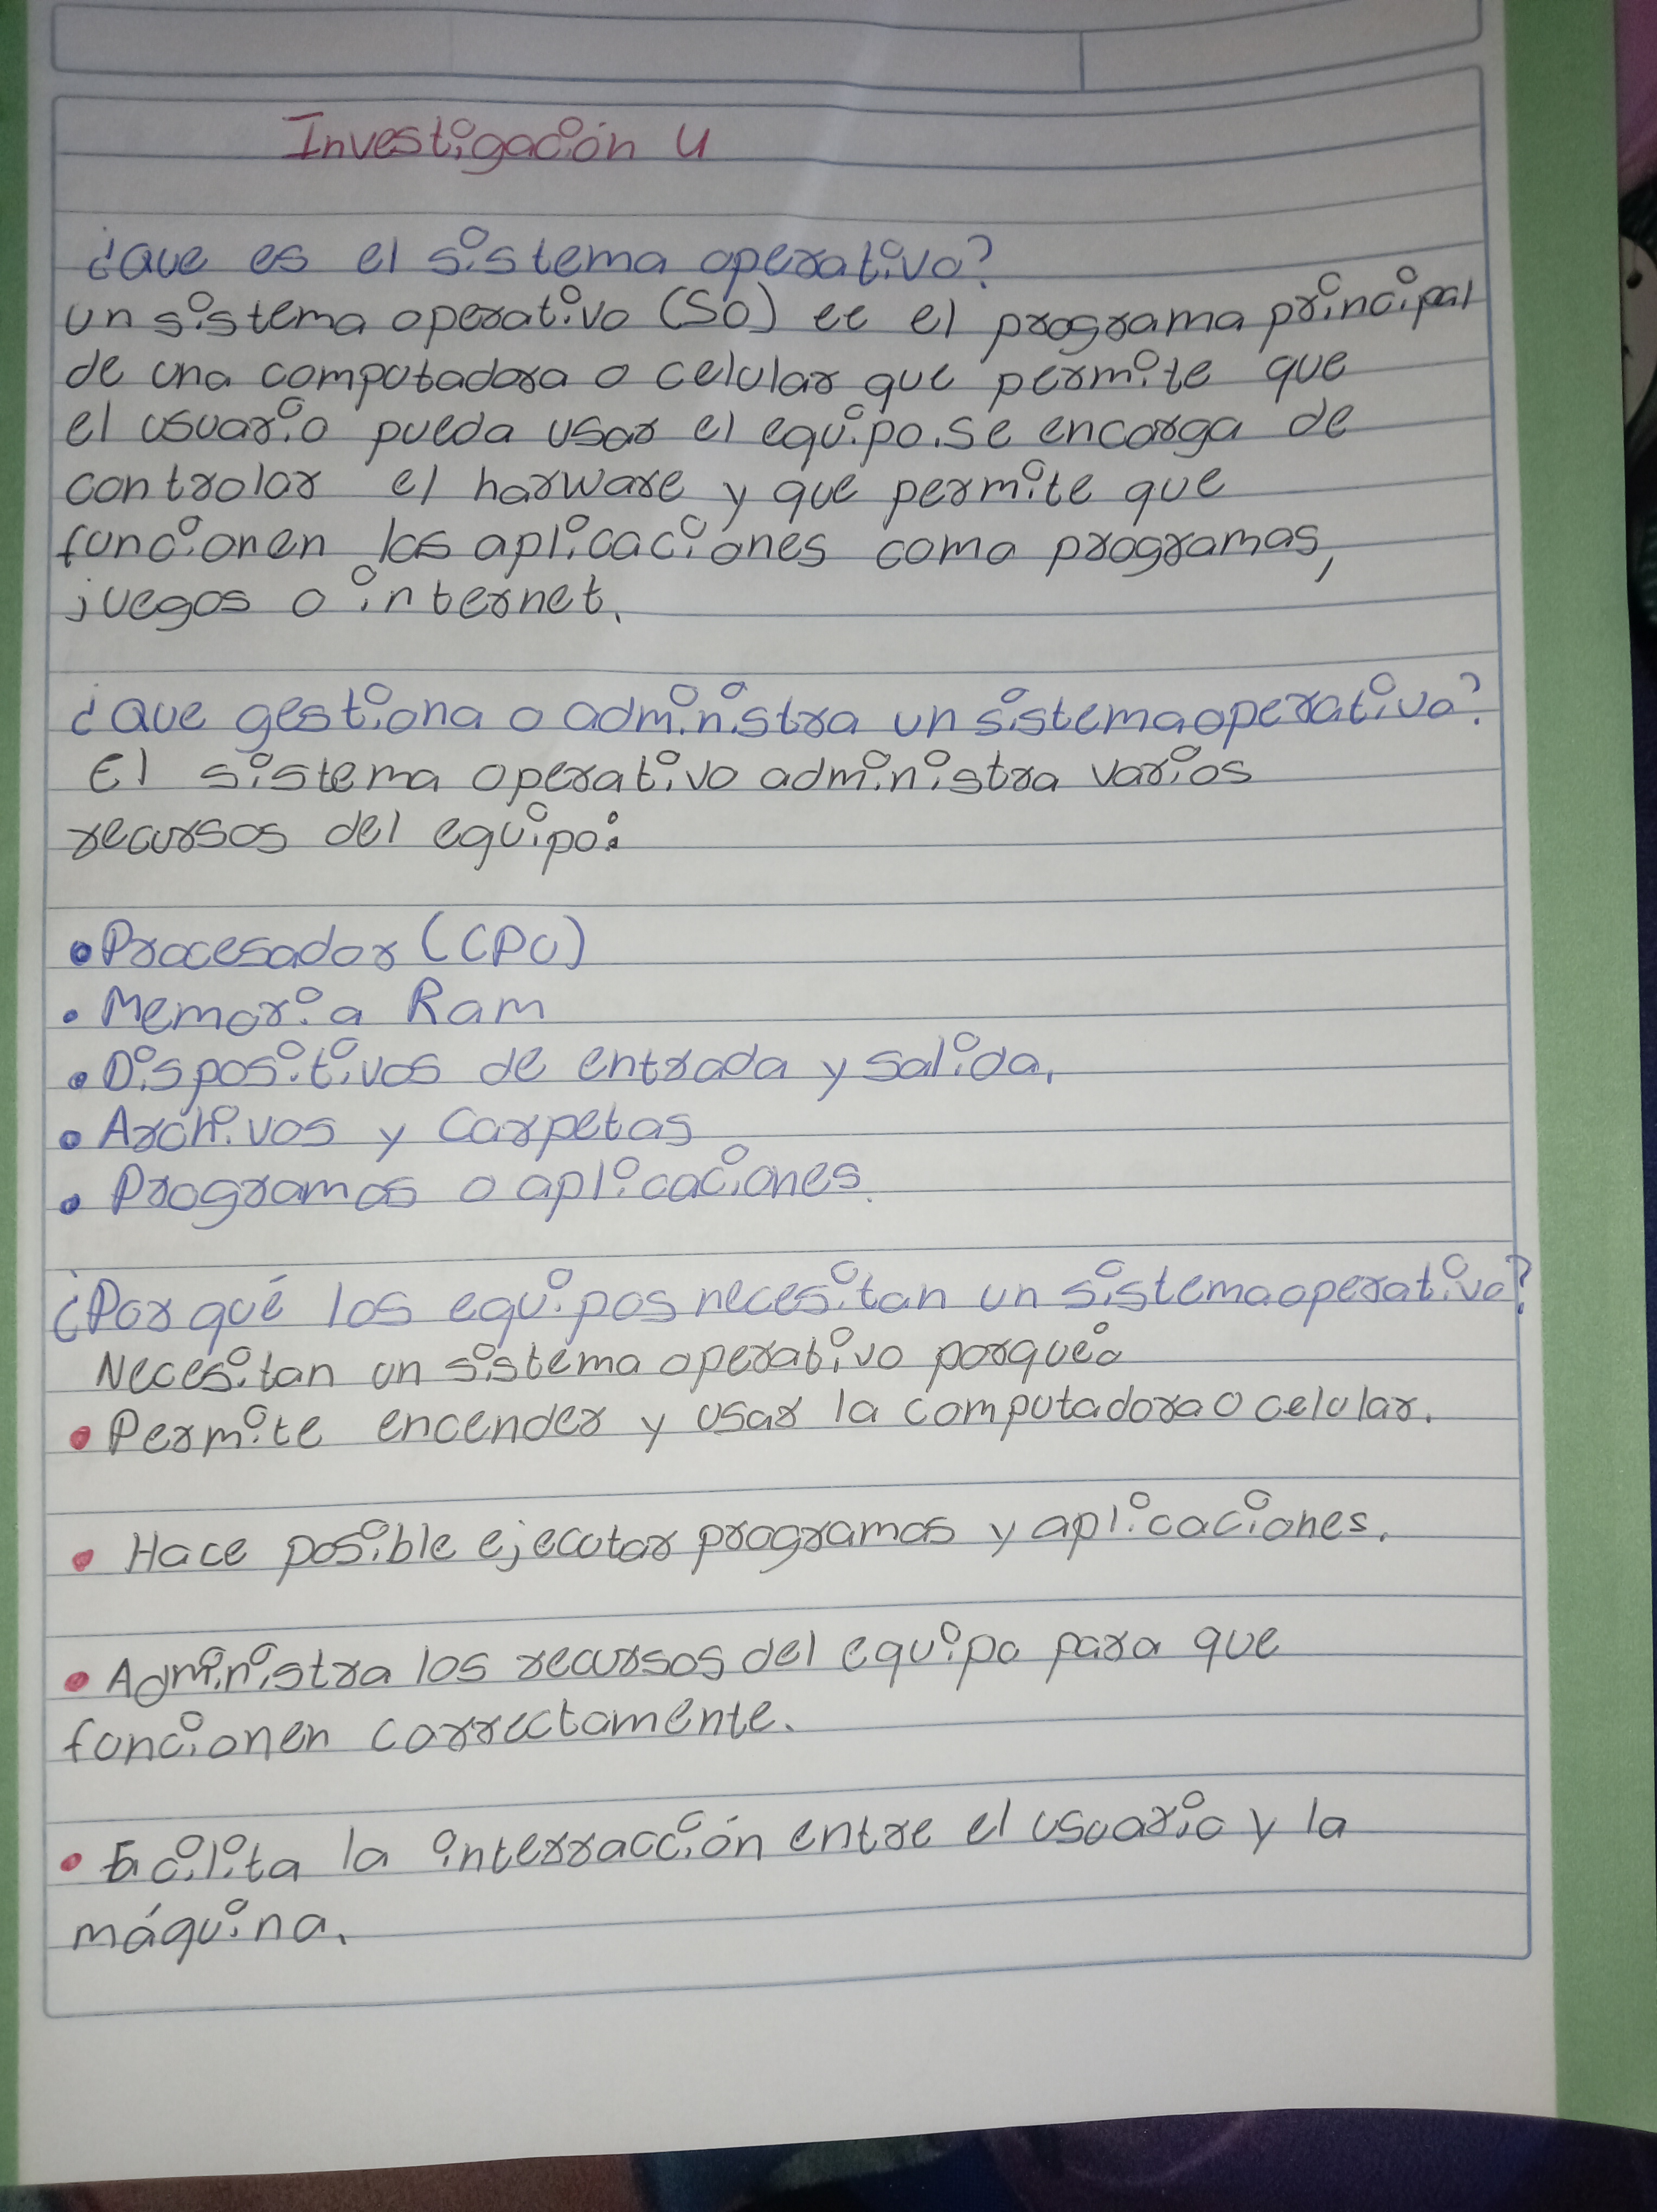 Investigación 4
¿Que es el sistema operativo?
un sistema operativo (SO) ee el programa principal
de una computadora o celular que permite que
el usuario pueda usar el equipo. se encarga de
controlar el harware y que permite que
funcionen las aplicaciones como programas,
juegos o internet.
¿Que gestiona o administra un sistema operativo?
El sistema operativo administra varios
recursos del equipo:
• Procesador (CPU)
• Memoria Ram
• Dispositivos de entrada y salida.
• Archivos y Carpetas
• Programas o aplicaciones.
¿Por qué los equipos necesitan un sistema operativo?
Necesitan un sistema operativo porque:
• Permite encender y usar la computadora o celular.
• Hace posible ejecutar programas y aplicaciones.
• Administra los recursos del equipo para que
funcionen correctamente.
• Facilita la interracción entre el usuario y la
máquina.